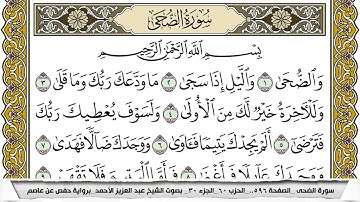 سُورَةُ الضُّحَى
بِسْمِ اللَّهِ الرَّحْمَٰنِ الرَّحِيمِ
وَالضُّحَىٰ ١ وَالَّيْلِ إِذَا سَجَىٰ ٢ مَا وَدَّعَكَ رَبُّكَ وَمَا قَلَىٰ ٣
وَلَلْآخِرَةُ خَيْرٌ لَّكَ مِنَ الْأُولَىٰ ٤ وَلَسَوْفَ يُعْطِيكَ رَبُّكَ
فَتَرْضَىٰ ٥ أَلَمْ يَجِدْكَ يَتِيمًا فَـَٔاوَىٰ ٦ وَوَجَدَكَ ضَالًّا فَهَدَىٰ ٧
وَوَجَدَكَ عَائِلًا فَأَغْنَىٰ ٨ فَأَمَّا الْيَتِيمَ فَلَا تَقْهَرْ ٩
سورة الضحى _الصفحة ٥٩٦.. الحزب ٦٠_الجزء ٣٠_ بصوت الشيخ عبد العزيز الأحمد_ برواية حفص عن عاصم